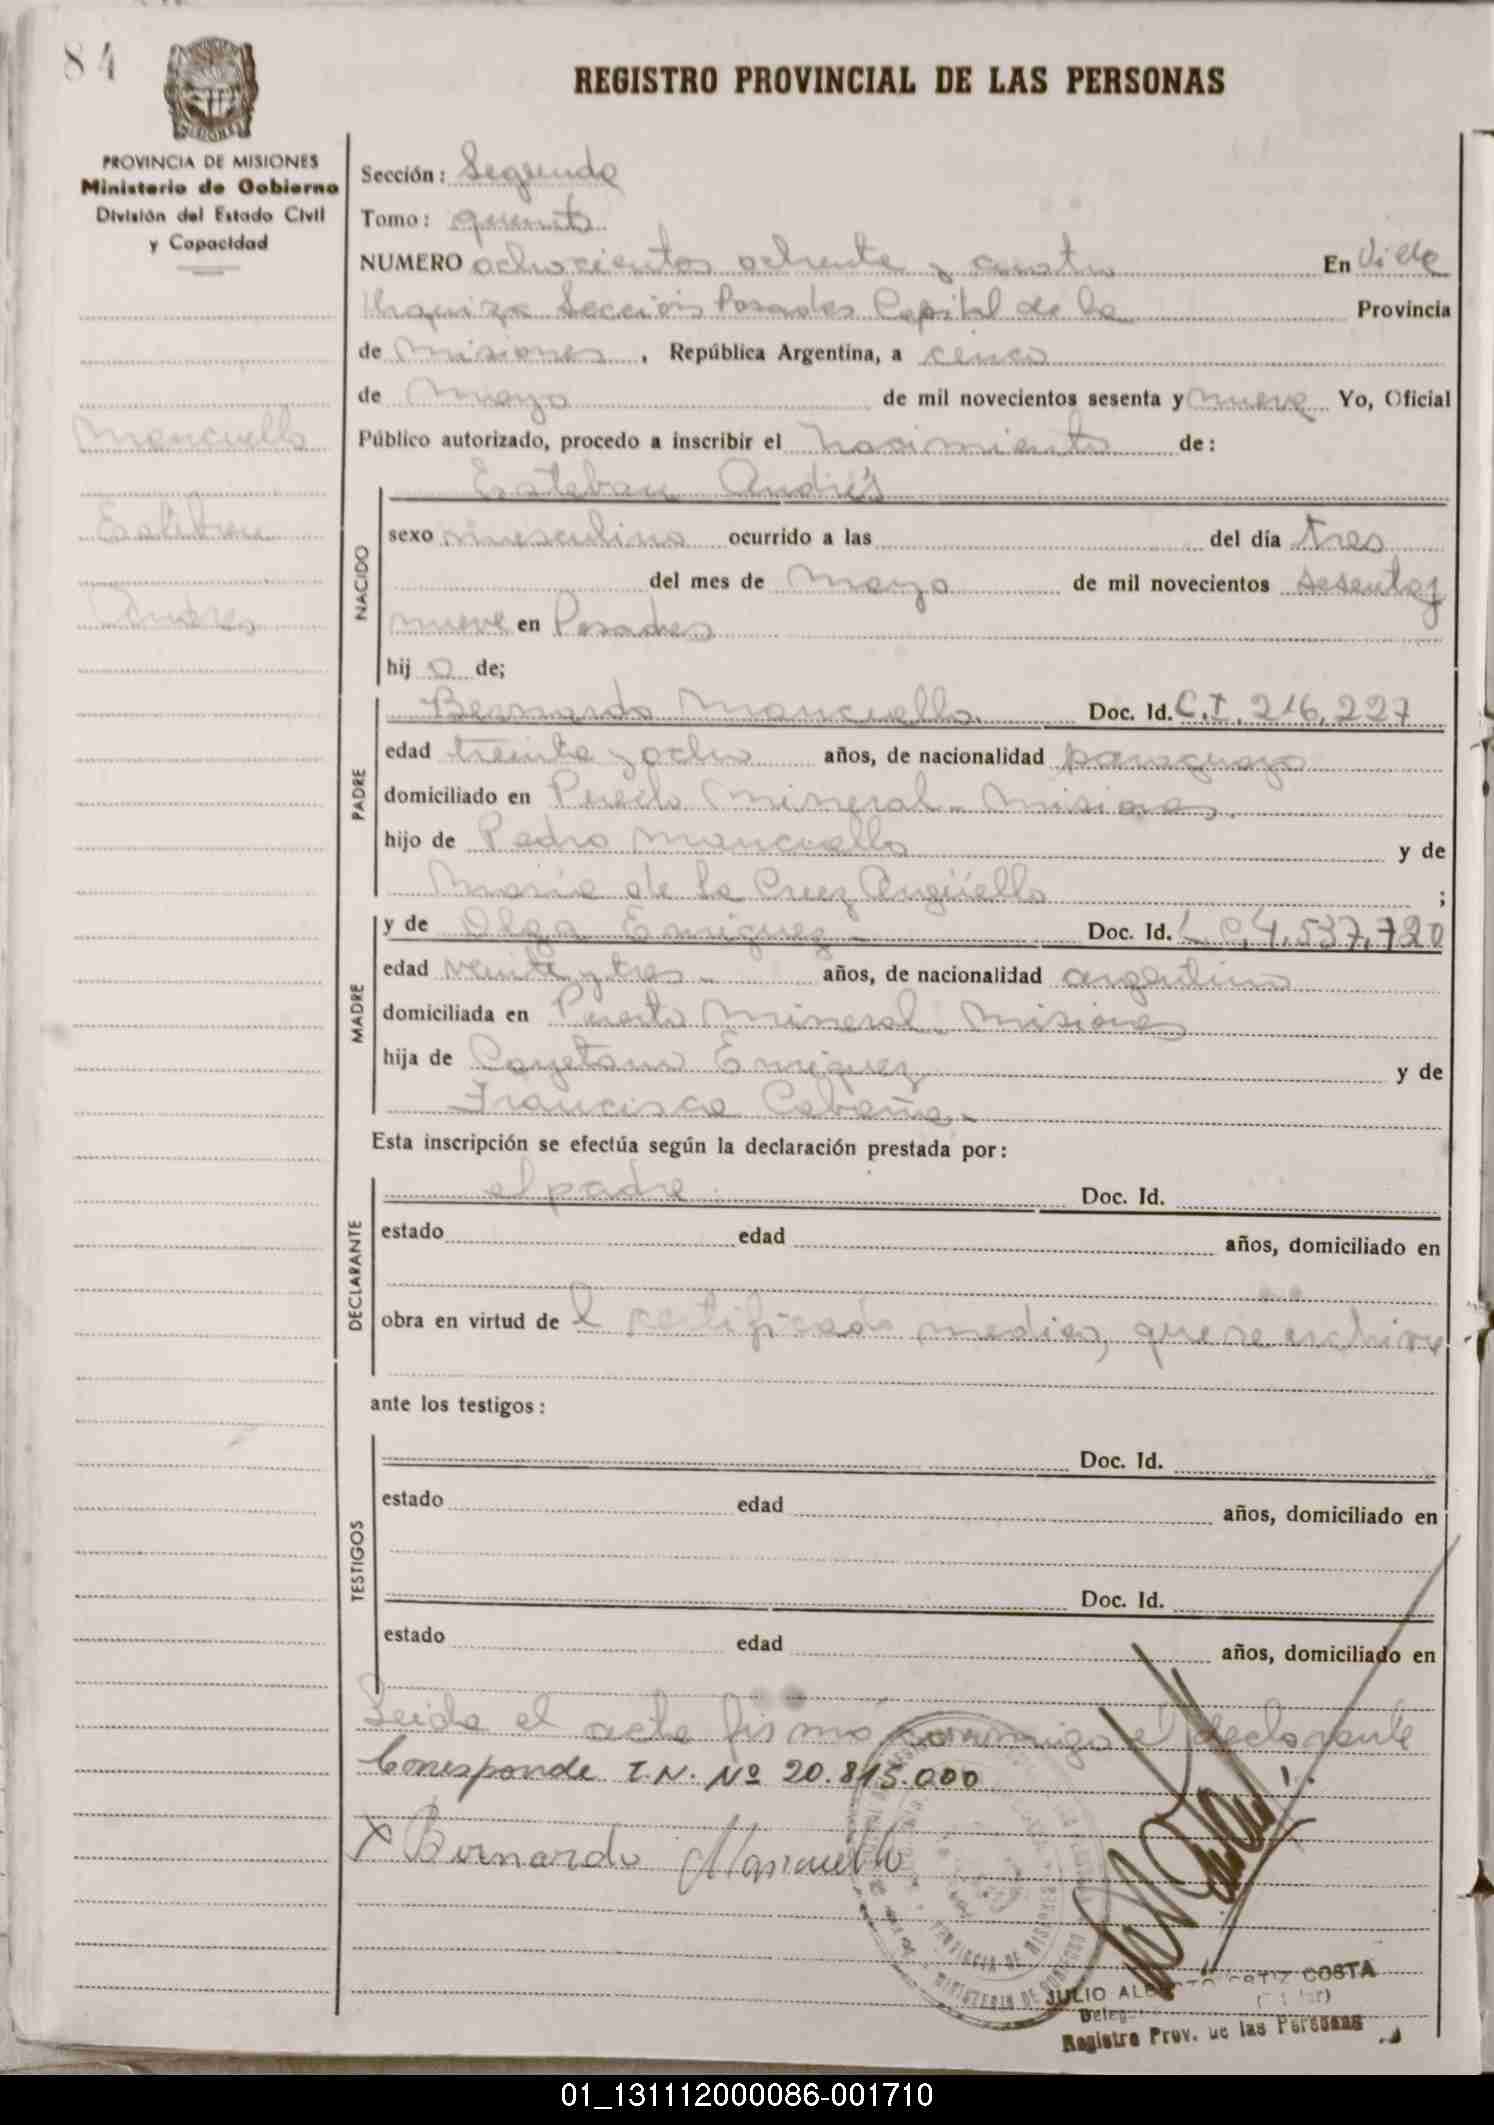 84
REGISTRO PROVINCIAL DE LAS PERSONAS
PROVINCIA DE MISIONES
Ministerio de Gobierno
División del Estado Civil
y Capacidad
Mancuello
Esteban
Andres
Sección: Segunda
Tomo: quinto
NUMERO ochocientos ochenta y cuatro En Villa
Urquiza Sección Posadas Capital de la Provincia
de Misiones, República Argentina, a cinco
de Mayo de mil novecientos sesenta y nueve Yo, Oficial
Público autorizado, procedo a inscribir el nacimiento de:
NACIDO
Esteban Andrés
sexo masculino ocurrido a las del día tres
del mes de Mayo de mil novecientos sesenta y
nueve en Posadas
hij o de;
PADRE
Bernardo Mancuello. Doc. Id. C.I. 216.227
edad treinta y ocho años, de nacionalidad paraguayo
domiciliado en Puerto Mineral - Misiones.
hijo de Pedro Mancuello y de
María de la Cruz Argüello ;
MADRE
y de Olga Enriquez - Doc. Id. L.C. 4.537.720
edad veinte y tres - años, de nacionalidad argentina
domiciliada en Puerto Mineral - Misiones
hija de Cayetano Enriquez y de
Francisca Cabaña -
Esta inscripción se efectúa según la declaración prestada por:
DECLARANTE
el padre. Doc. Id.
estado edad años, domiciliado en
obra en virtud de l certificado medico, que se archiva
ante los testigos:
TESTIGOS
Doc. Id.
estado edad años, domiciliado en
Doc. Id.
estado edad años, domiciliado en
Leida el acta firmó conmigo el declarante
Corresponde I.N. Nº 20.815.000
X Bernardo Mancuello
PROVINCIA DE MISIONES
MINISTERIO DE GOBIERNO
JULIO ALBERTO ORTIZ COSTA
Registro Prov. de las Personas
01_131112000086-001710